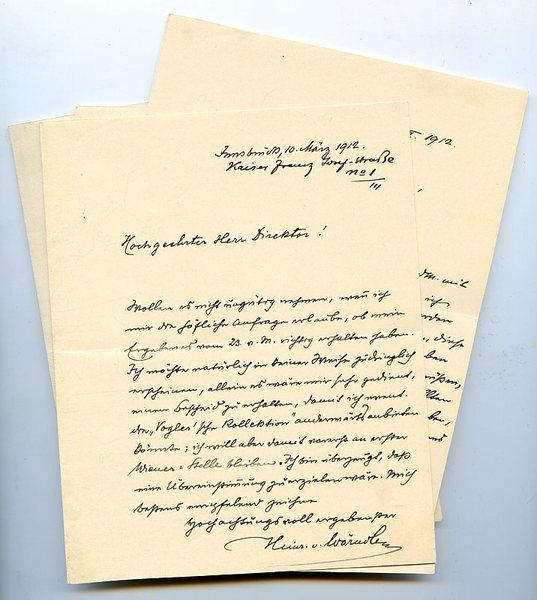 Innsbruck, 10. März 1912.
Kaiser Franz Josef-Straße
No 1
III
Hochgeehrter Herr Direktor!
Wollen es nicht ungütig nehmen, wenn ich
mir die höfliche Anfrage erlaube, ob mein
Ergebenes vom 23. v. M. richtig erhalten haben.
Ich möchte natürlich in keiner Weise zudringlich
erscheinen, allein es wäre mir sehr gedient,
einen Bescheid zu erhalten, damit ich event.
die „Vogler'sche Kollektion" anderwärts anbieten
könnte; ich will aber damit vorerst an erster
Wiener-Stelle bleiben. Ich bin überzeugt, daß
eine Übereinstimmung zu erzielen wäre. Mich
bestens empfehlend zeichne
hochachtungsvoll ergebenster
Heinr. v. Wörndle
1912.
mit
ich